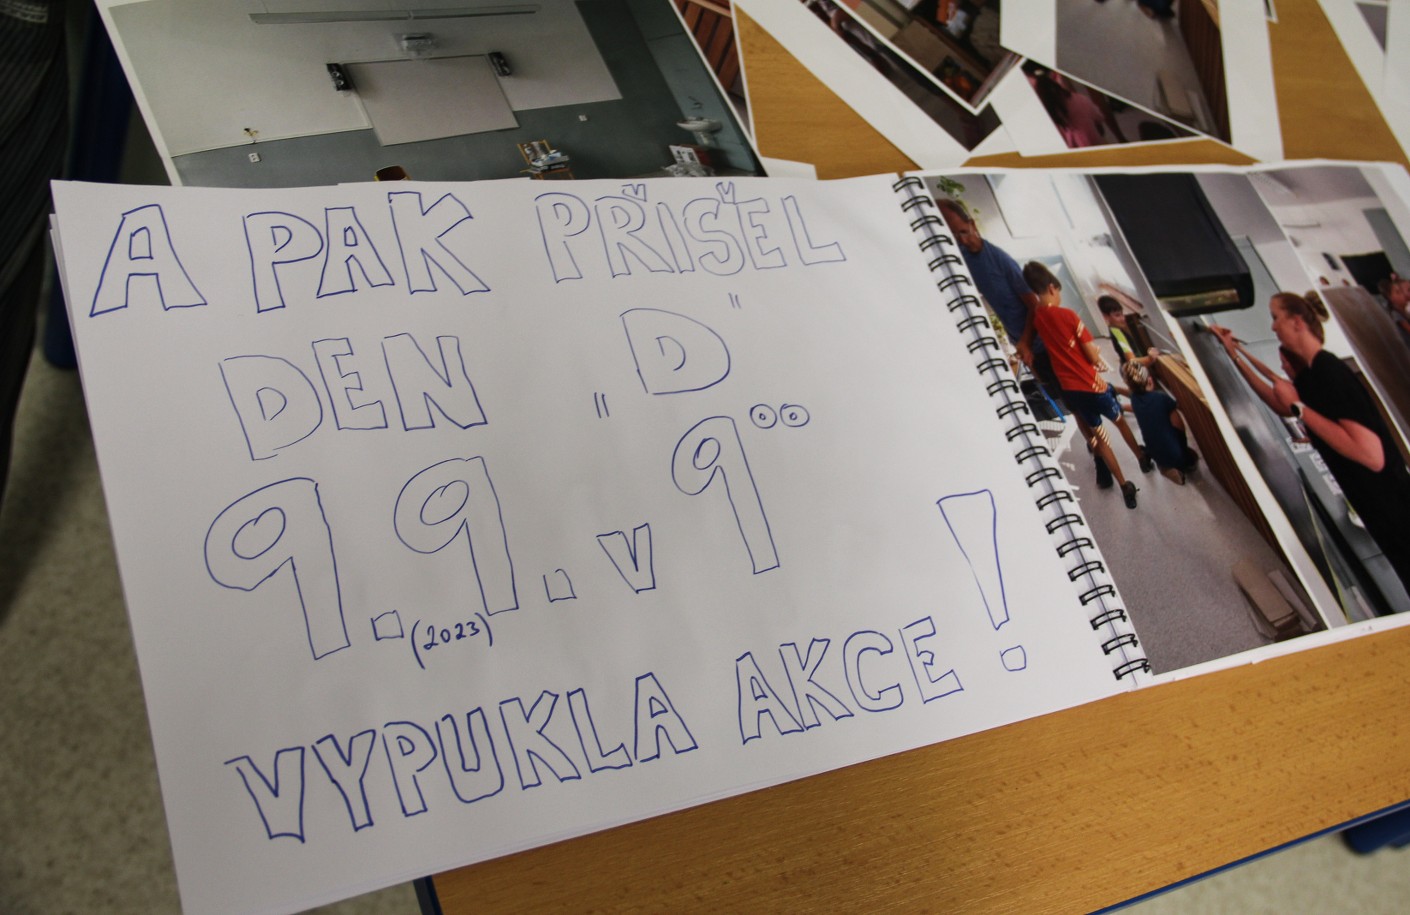 A PAK PŘIŠEL
DEN „D"
9.9. v 9⁰⁰
(2023)
VYPUKLA AKCE!